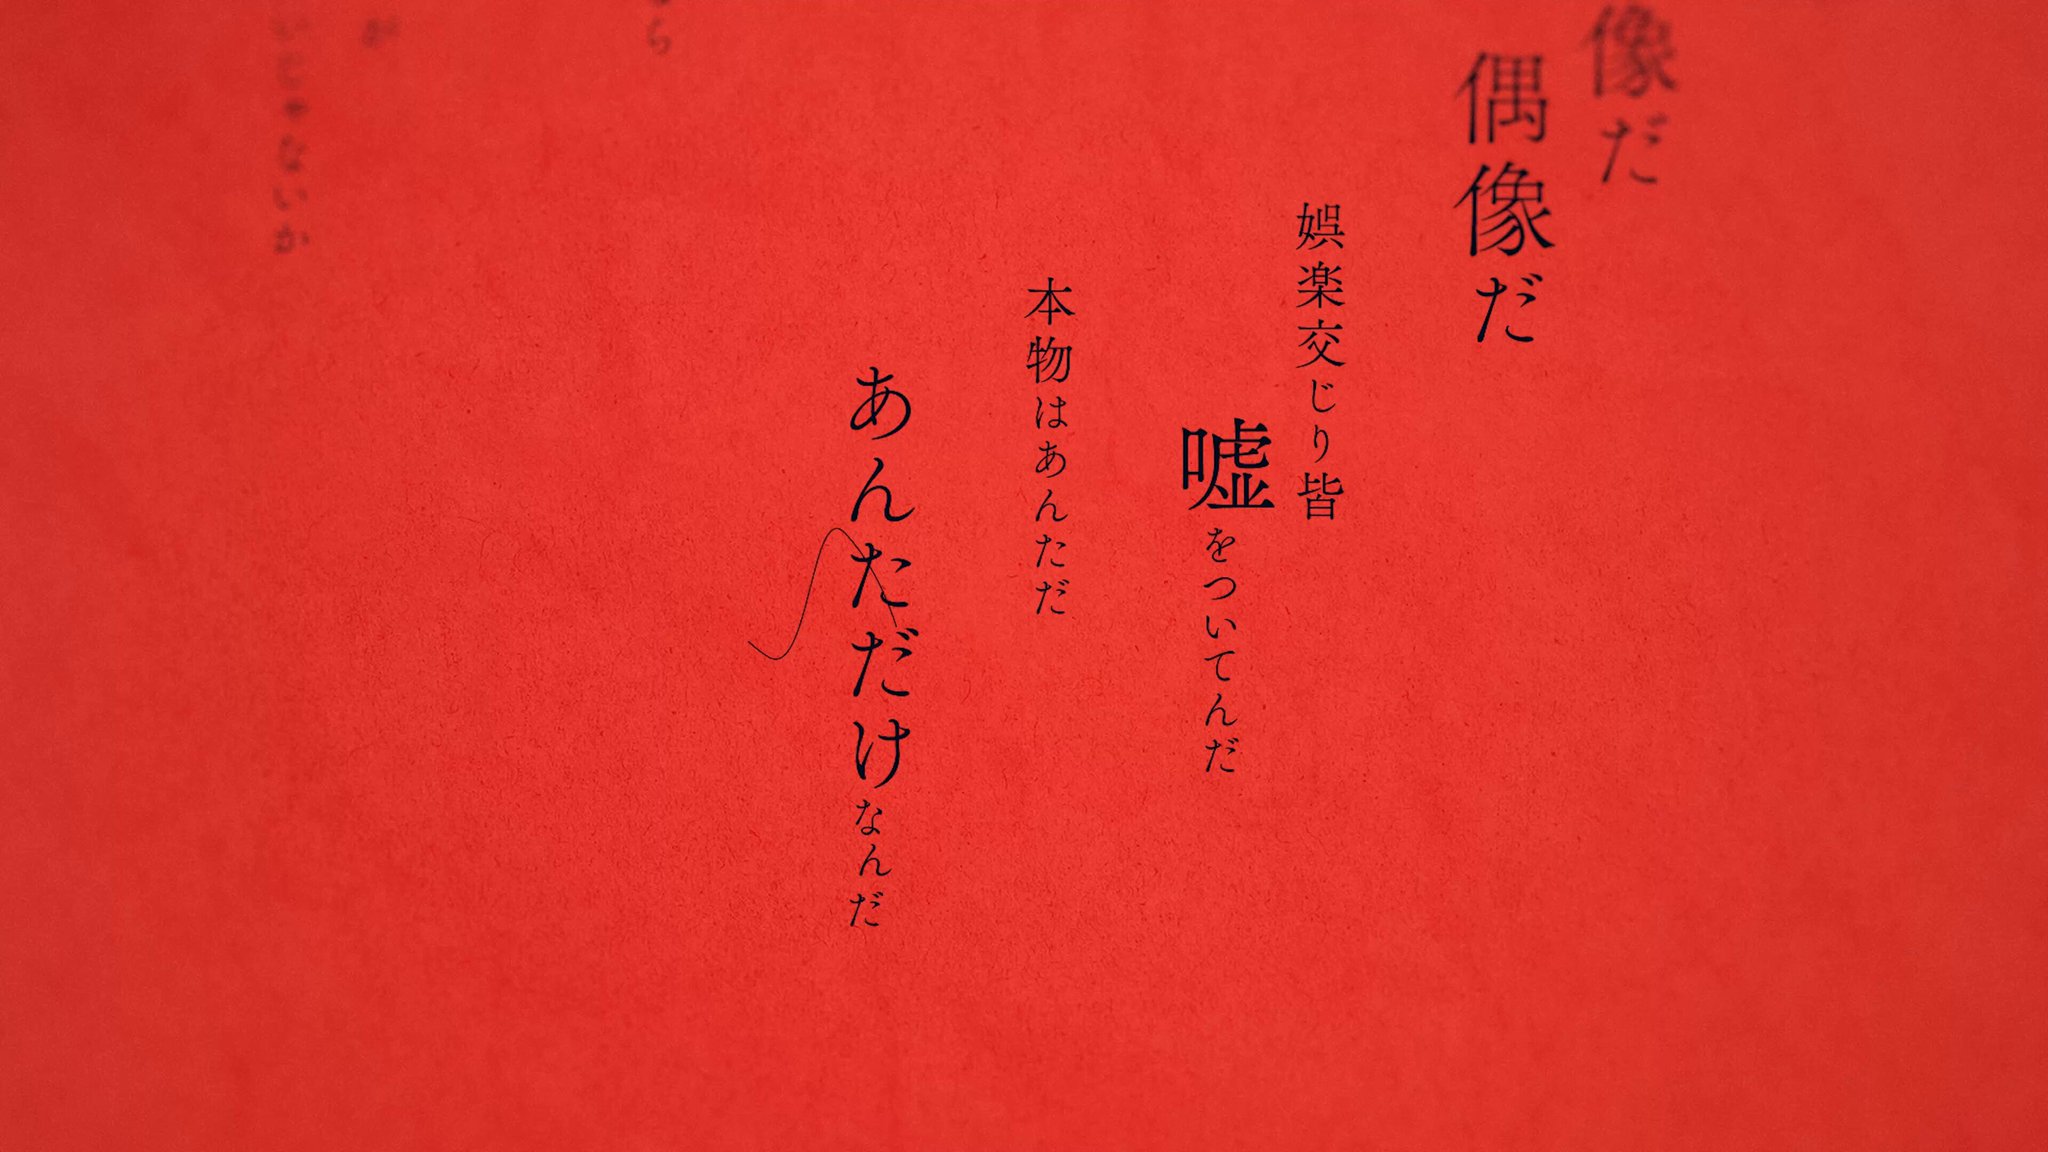 像だ
偶像だ
娯楽交じり皆
嘘をついてんだ
本物はあんただ
あんただけなんだ
ち
が
いじゃないか